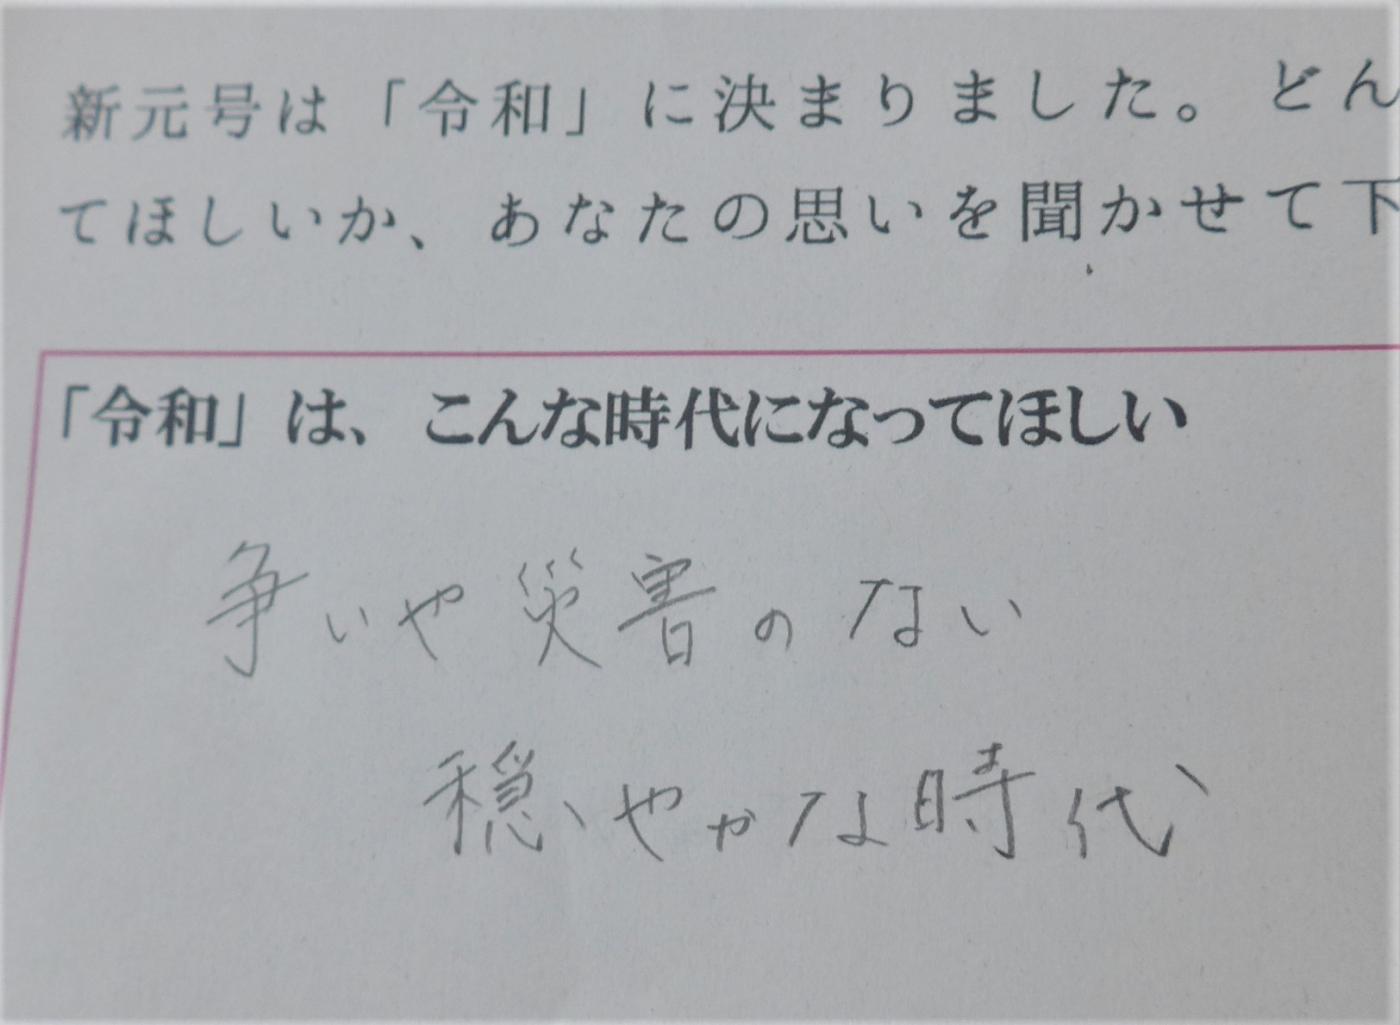 新元号は「令和」に決まりました。どん
てほしいか、あなたの思いを聞かせて下
「令和」は、こんな時代になってほしい
争いや災害のない
穏やかな時代